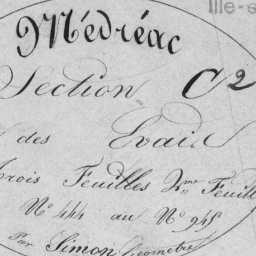 Ille-
Médréac
Section C2
des Evaid
Trois Feuilles 2me Feuill
N° 444 au N° 945
Par Simon Géomètre